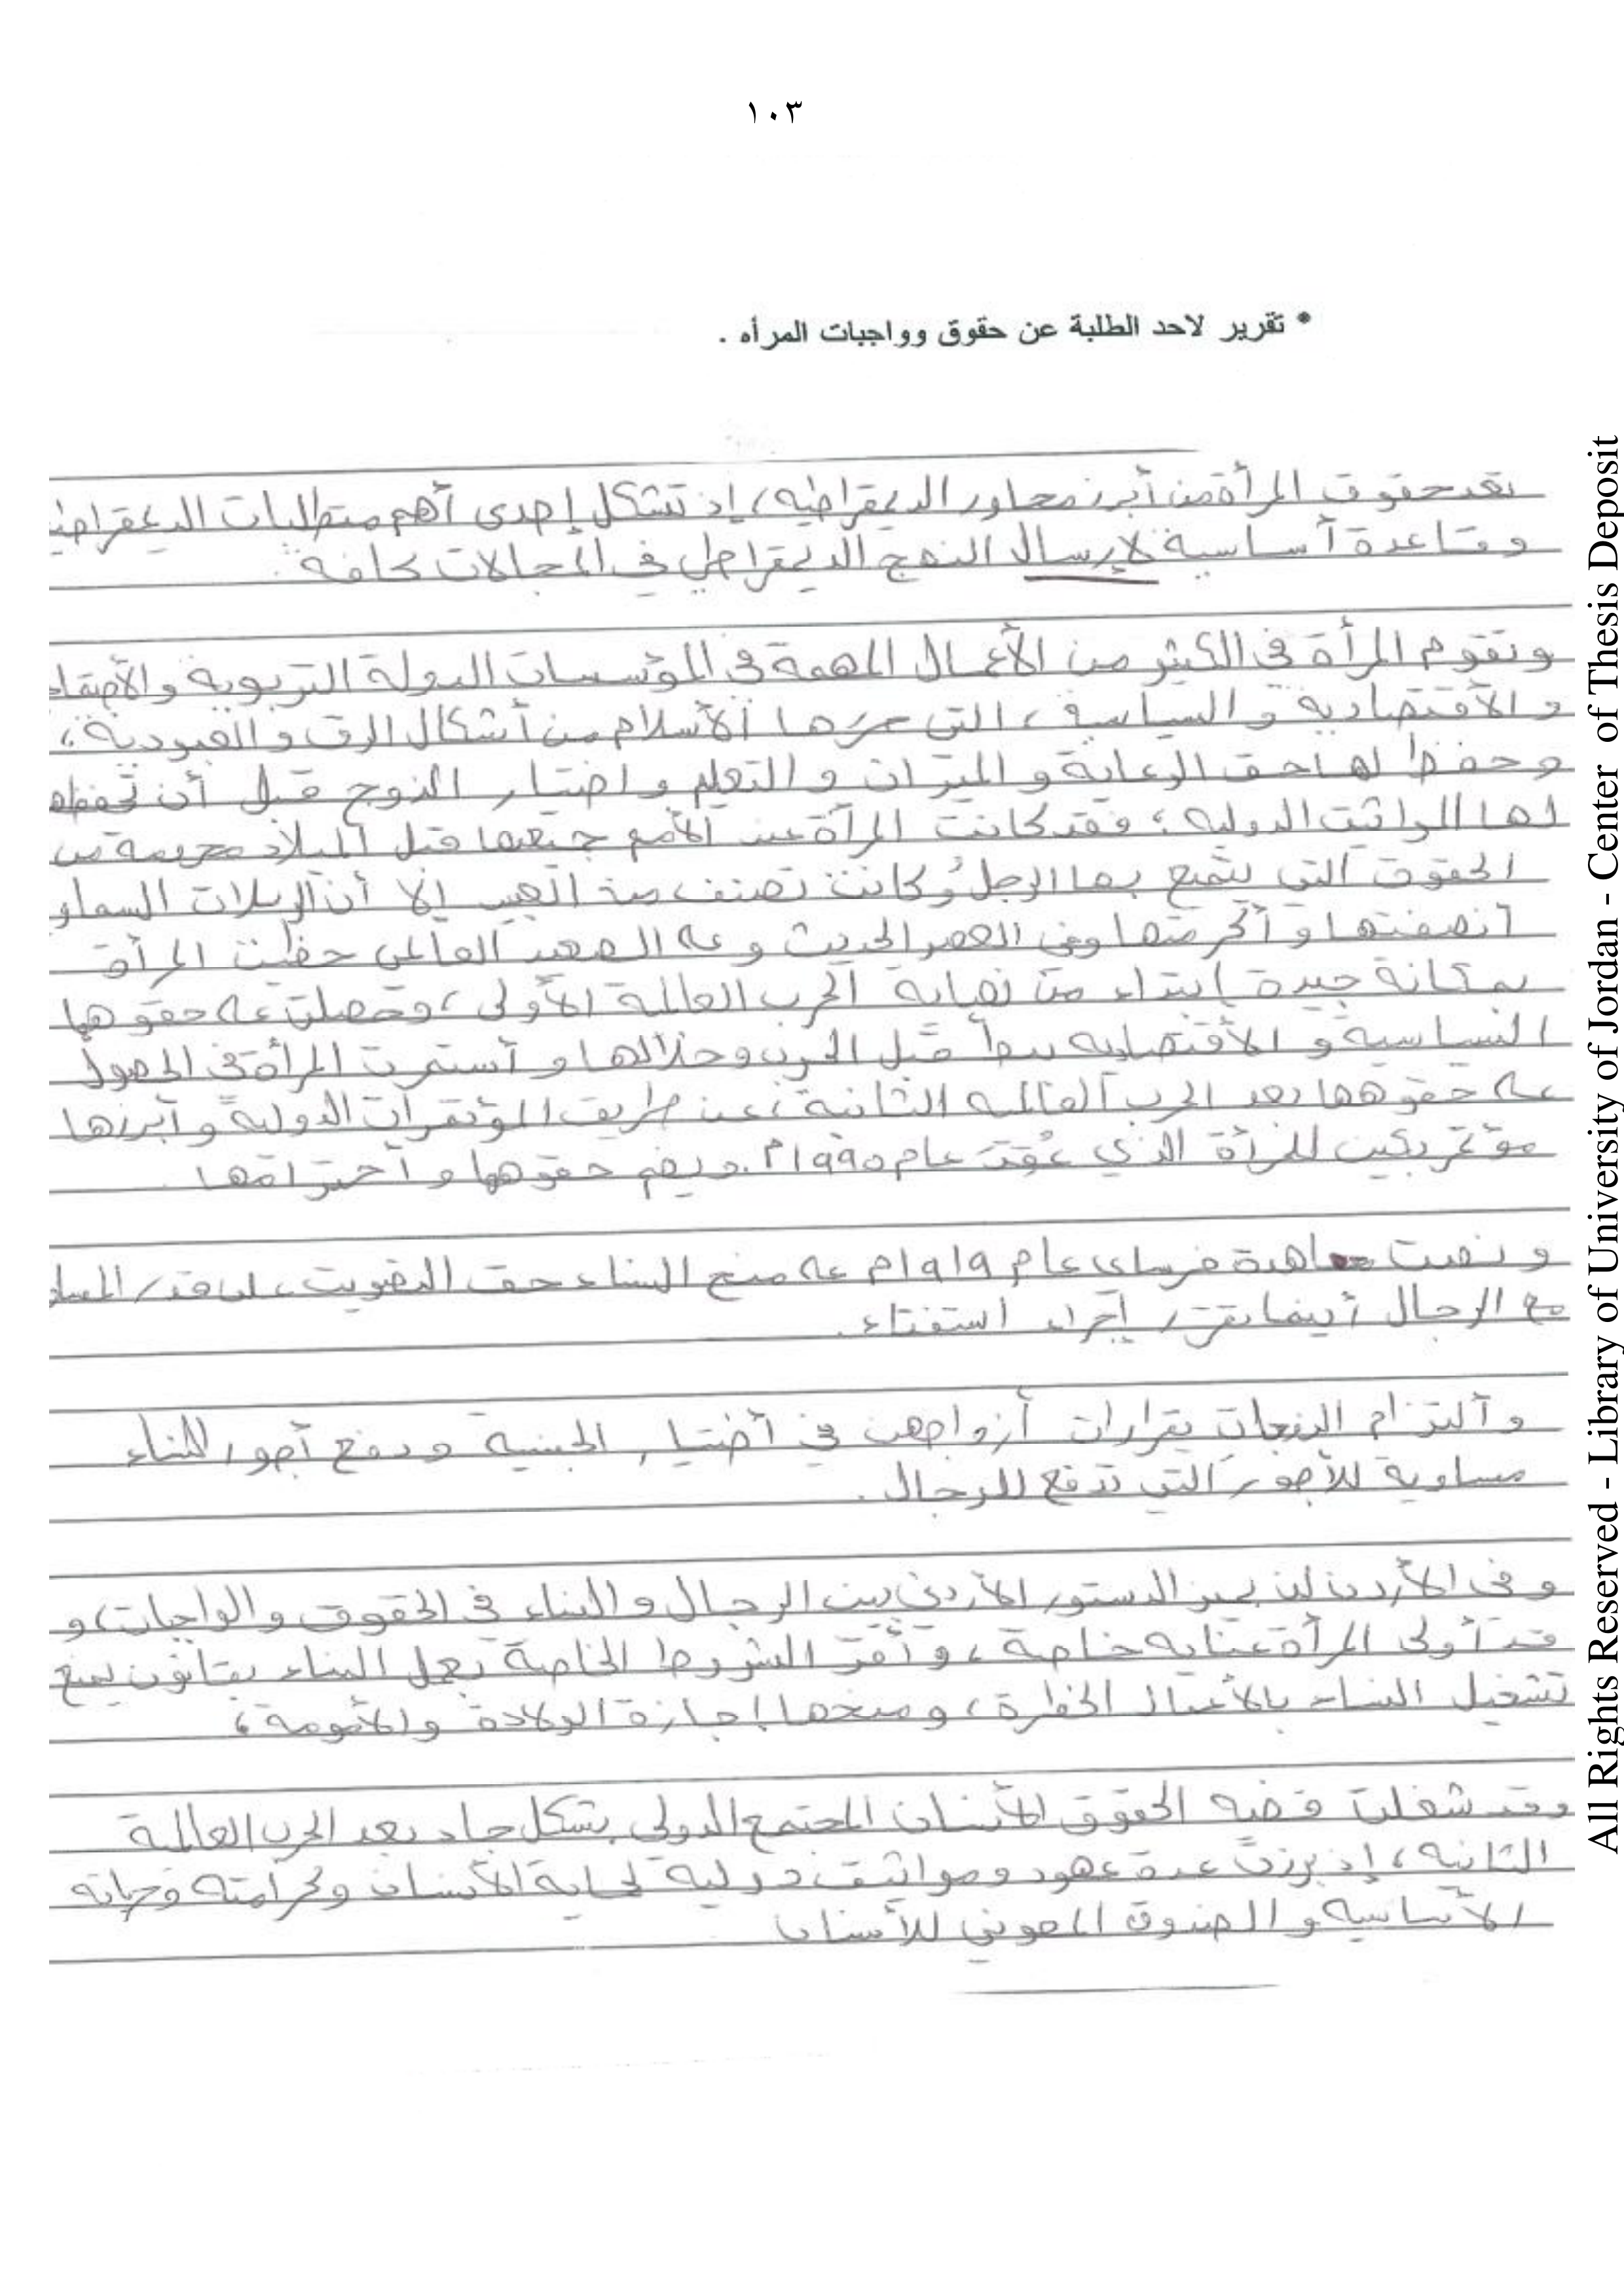 ١٠٣
* تقرير لاحد الطلبة عن حقوق وواجبات المرأه .
تعد حقوق المرأة من أبرز محاور الديمقراطيه، إذ تشكل إحدى أهم متطلبات الديمقراطية
وقاعدة أساسية لإرسال النهج الديمقراطي في المجالات كافة.
وتقوم المرأة في الكثير من الأعمال المهمة في المؤسسات الدولة التربوية والأجتما
والأقتصادية والسياسية، التي حررها الأسلام من أشكال الرق والعبودية،
وحفظ لها حق الرعاية والميراث والتعليم واختيار الزوج قبل أن تحفظه
لها المواثيق الدوليه؛ فقد كانت المرأة عند الأمم جميعها قبل الميلاد محرومة من
الحقوق التي يتمتع بها الرجل وكانت تصنف من العبيد إلا أن الرسالات السماو
أنصفتها وأكرمتها وفي العصر الحديث وعلى الصعيد العالمي حظيت المرأة
بمكانة جيدة إبتداء من نهاية الحرب العالمية الأولى، وحصلت على حقوقها
السياسية والأقتصاديه قبل الحرب وخلالها وأستمرت المرأة في الحصول
على حقوقها بعد الحرب العالميه الثانية، عن طريق المؤتمرات الدولية وأبرزها
مؤتمر بكين للمرأة الذي عُقد عام ١٩٩٥م. حقوقها وأحترامها.
ونصت معاهدة فرساي عام ١٩١٩م على منح النساء حق التصويت على قدر المساو
مع الرجال أينما تقرر إجراء استفتاء.
وألتزام الزوجات بقرارات أزواجهن في أختيار الجنسية ودفع أجور للنساء
مساوية للأجور التي تدفع للرجال.
وفي الأردن لن يميز الدستور الأردني بين الرجال والنساء في الحقوق والواجبات، و
قد أولى المرأة عناية خاصة، وتقر الشروط الخاصة بعمل النساء بقانون يمنع
تشغيل النساء بالأعمال الخطرة، ومنحها إجازة الولادة والأمومة،
وقد شغلت قضيه الحقوق الأنسان المجتمع الدولي بشكل جاد بعد الحرب العالمية
الثانيه، إذ برزت عدة عهود ومواثيق دولية لحماية الأنسان وكرامته وحرياته
الأساسيه والصندوق المعوني للأنسان
All Rights Reserved - Library of University of Jordan - Center of Thesis Deposit